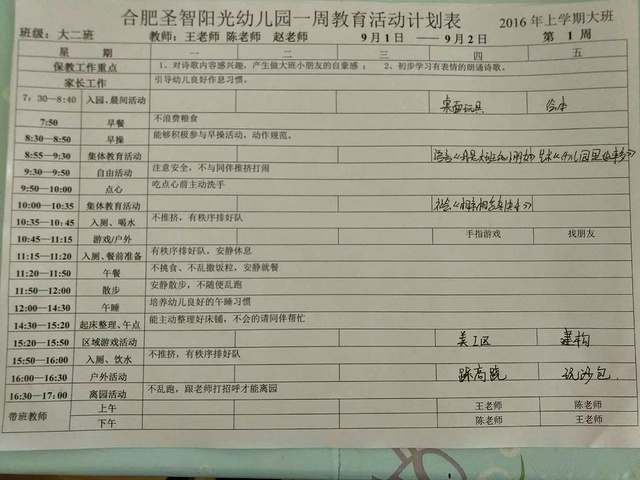 合肥圣智阳光幼儿园一周教育活动计划表 2016 年上学期大班
班级：大二班 教师：王老师 陈老师 赵老师 9月1日——9月2日 第 1 周
星 期 一 二 三 四 五
保教工作重点 1、对诗歌内容感兴趣，产生做大班小朋友的自豪感； 2、初步学习有表情的朗诵诗歌。
家长工作 引导幼儿良好作息习惯。
7：30—8:40 入园、晨间活动 桌面玩具 绘本
7:50 早餐 不浪费粮食
8:30—8:50 早操 能够积极参与早操活动，动作规范。
8:55—9:30 集体教育活动 语言《我是大班的小朋友》
9:30—9:50 自由活动 注意安全，不与同伴推挤打闹
9:50—10:00 点心 吃点心前主动洗手
10:00—10:35 集体教育活动 社会
10:35—10:45 入厕、喝水 不推挤，有秩序排好队
10:45—11:15 游戏/户外 手指游戏 找朋友
11:15—11:20 入厕、餐前准备 有秩序排好队，安静休息
11:20—11:50 午餐 不挑食、不乱撒饭粒，安静就餐
11:50—12:00 散步 安静散步，不随便乱跑
12:00—14:30 午睡 培养幼儿良好的午睡习惯
14:30—15:20 起床整理、午点 能主动整理好床铺，不会的请同伴帮忙
15:20—15:50 区域游戏活动 美工区 建构
15:50—16:00 入厕、饮水 不推挤，有秩序排好队
16:00—16:30 户外活动 踩高跷 玩沙包
16:30—17:00 离园活动 不乱跑，跟老师打招呼才能离园
带班教师 上午 王老师 陈老师
下午 陈老师 王老师